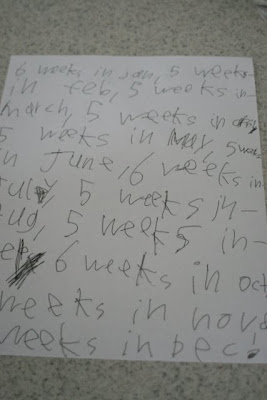 6 weeks in Jan, 5 weeks
in feb, 5 weeks in-
march, 5 weeks in
5 weeks in May, 5
in June, 6 weeks in
July, 5 weeks in-
aug, 5 weeks in-
6 weeks in oct
weeks in nov
weeks in Dec!